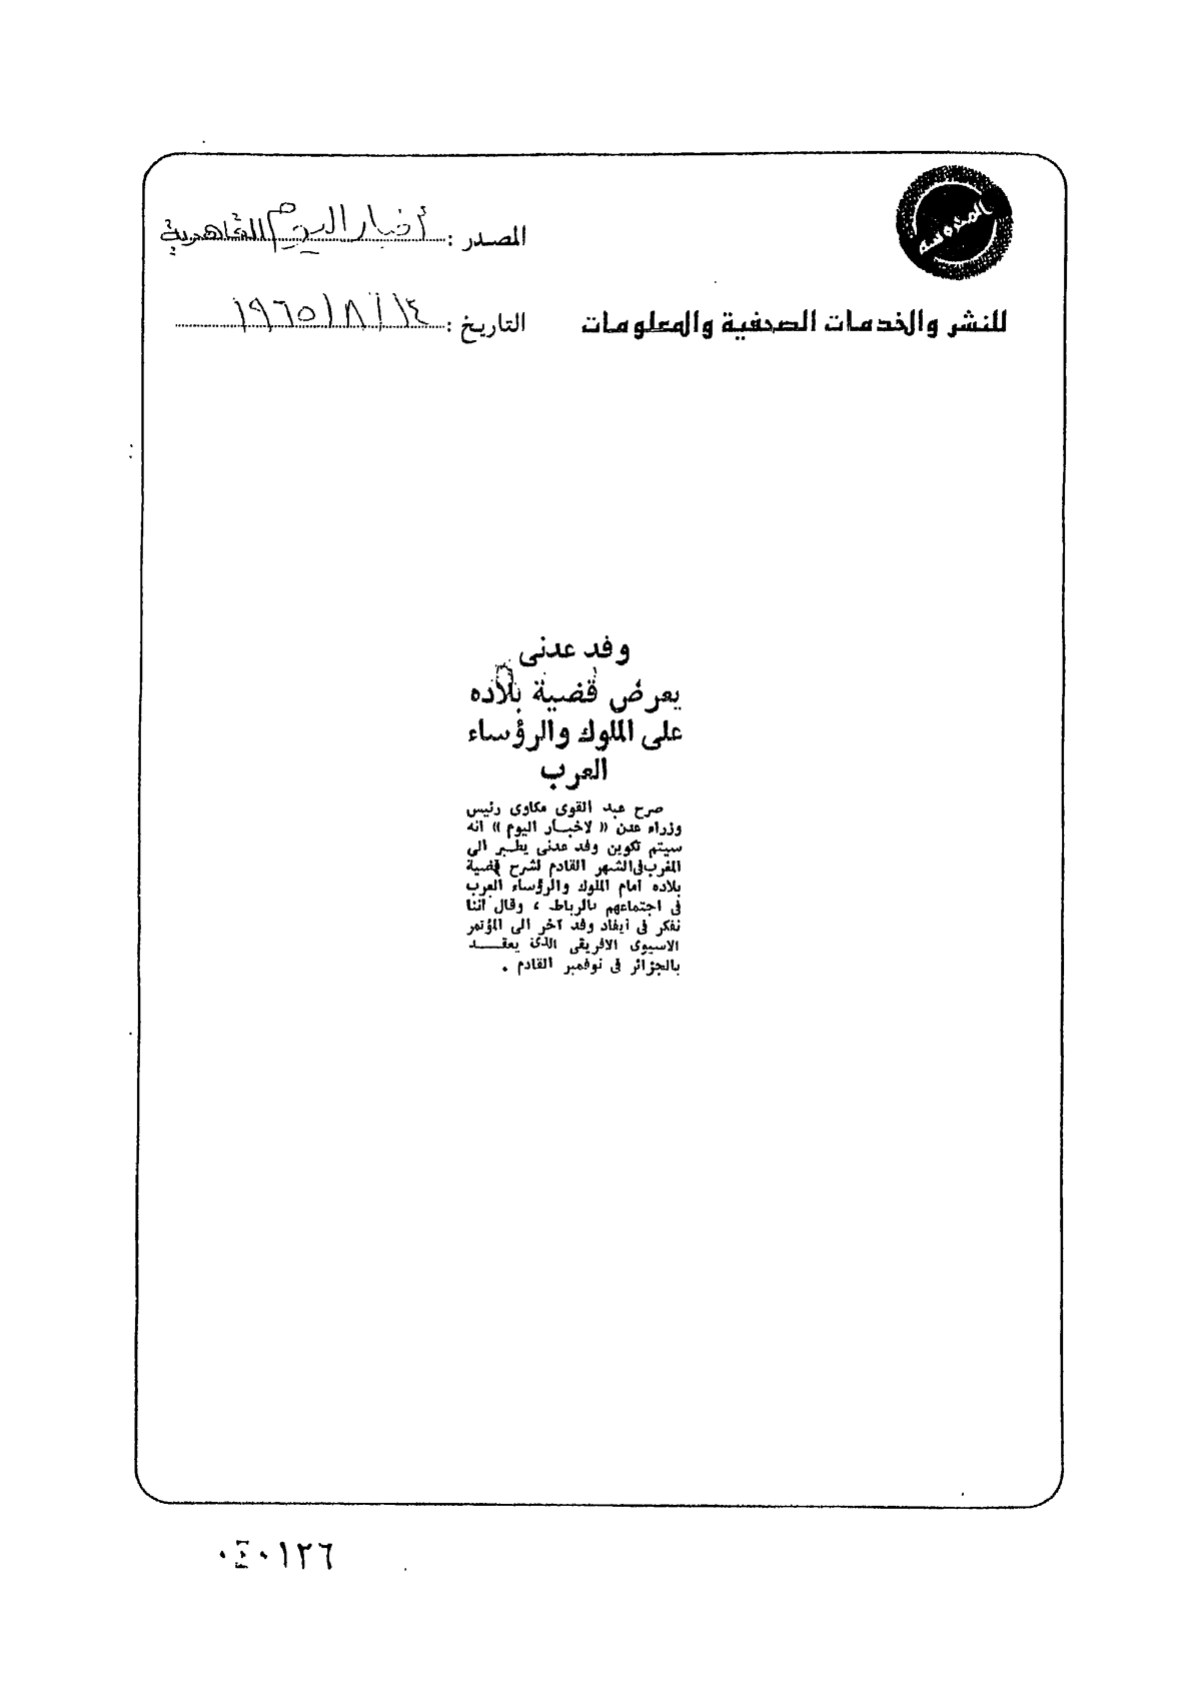 المحروسة
للنشر والخدمات الصحفية والمعلومات
المصدر : أخبار اليوم القاهرية
التاريخ : ١٩٦٥/٨/١٤
وفد عدنى
يعرض قضية بلاده
على الملوك والرؤساء
العرب
صرح عبد القوى مكاوى رئيس
وزراء عدن « لاخبار اليوم » انه
سيتم تكوين وفد عدنى يطير الى
المغرب فى الشهر القادم لشرح قضية
بلاده أمام الملوك والرؤساء العرب
فى اجتماعهم بالرباط ، وقال اننا
نفكر فى أيفاد وفد آخر الى المؤتمر
الاسيوى الافريقى الذى يعقد
بالجزائر فى نوفمبر القادم .